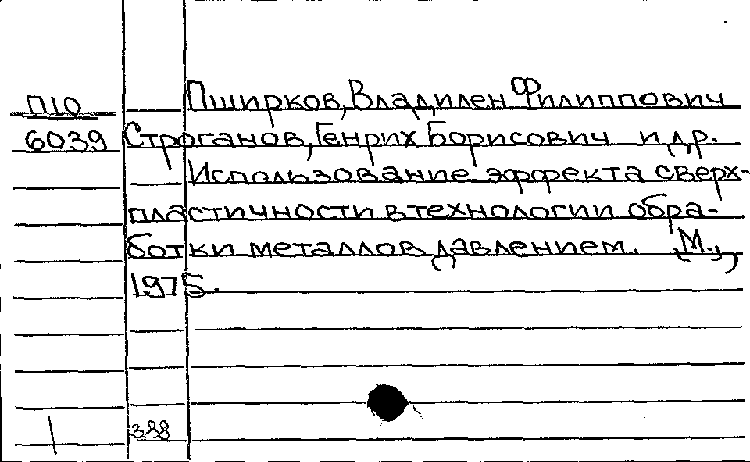 П10 Пширков, Владилен Филиппович
6039 Строганов, Генрих Борисович и др.
Использование эффекта сверх-
пластичности в технологии обра-
ботки металлов давлением. М.,
1975.